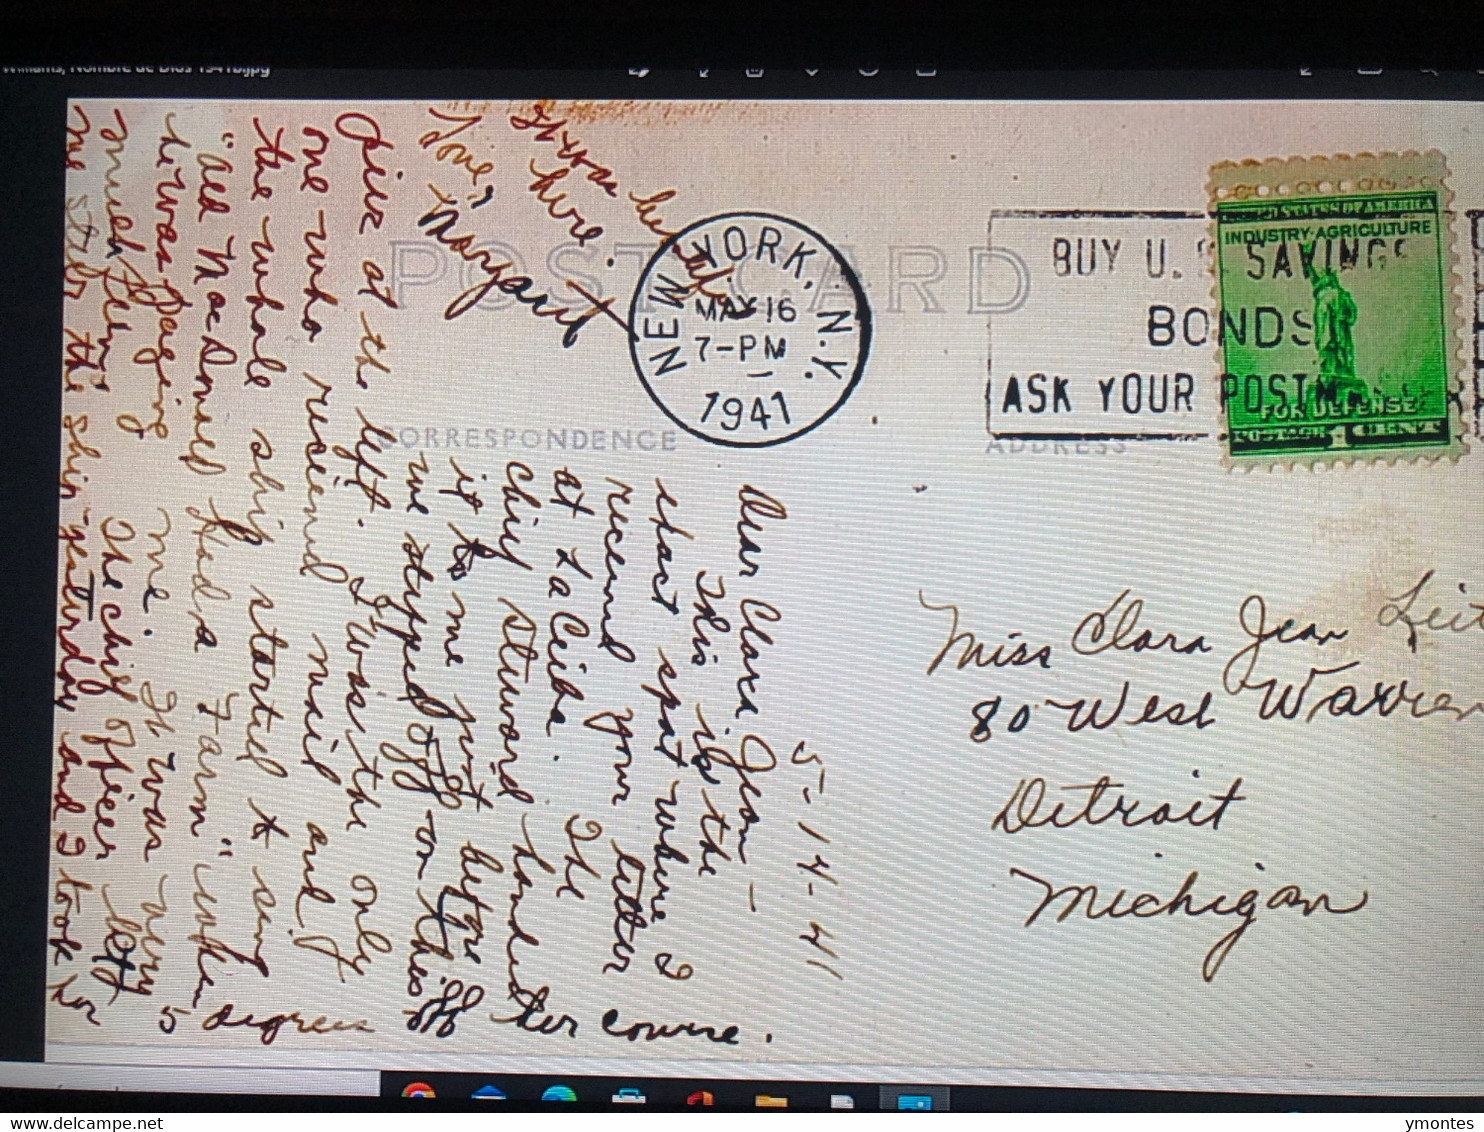 Williams, Nombre de Dios 1941b.jpg
POST CARD
CORRESPONDENCE
ADDRESS
NEW YORK, N.Y.
MAY 16
7-PM
1941
BUY U.S. SAVINGS
BONDS
ASK YOUR POSTM
UNITED STATES OF AMERICA
INDUSTRY·AGRICULTURE
FOR DEFENSE
POSTAGE 1 CENT
Miss Clara Jean
80 West Warren
Detroit
Michigan
5-14-41
Dear Clara Jean -
This is the
exact spot where I
received your letter
at La Ceiba. The
chief steward handed
it to me just before
we stepped off on this
pier at the left. I was the only
one who received mail and
the whole ship started to sing
"Old MacDonald Had a Farm" when
he was paging me. It was very
much fun. The chief officer let
me steer the ship yesterday and I took her
5 degrees off her course.
It was
here.
Love,
Margaret
ymontes